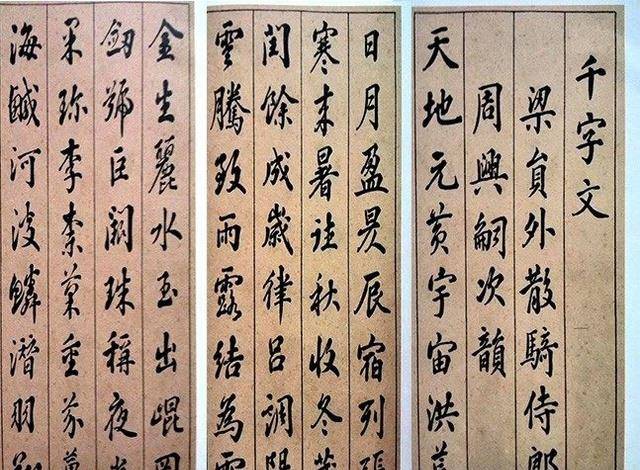 千字文
梁員外散騎侍郎
周興嗣次韻
天地元黃宇宙洪荒
日月盈昃辰宿列張
寒来暑往秋收冬藏
閏餘成歲律呂調陽
雲騰致雨露結為霜
金生麗水玉出崐岡
劒號巨闕珠稱夜光
果珍李柰菜重芥薑
海鹹河淡鱗潛羽翔